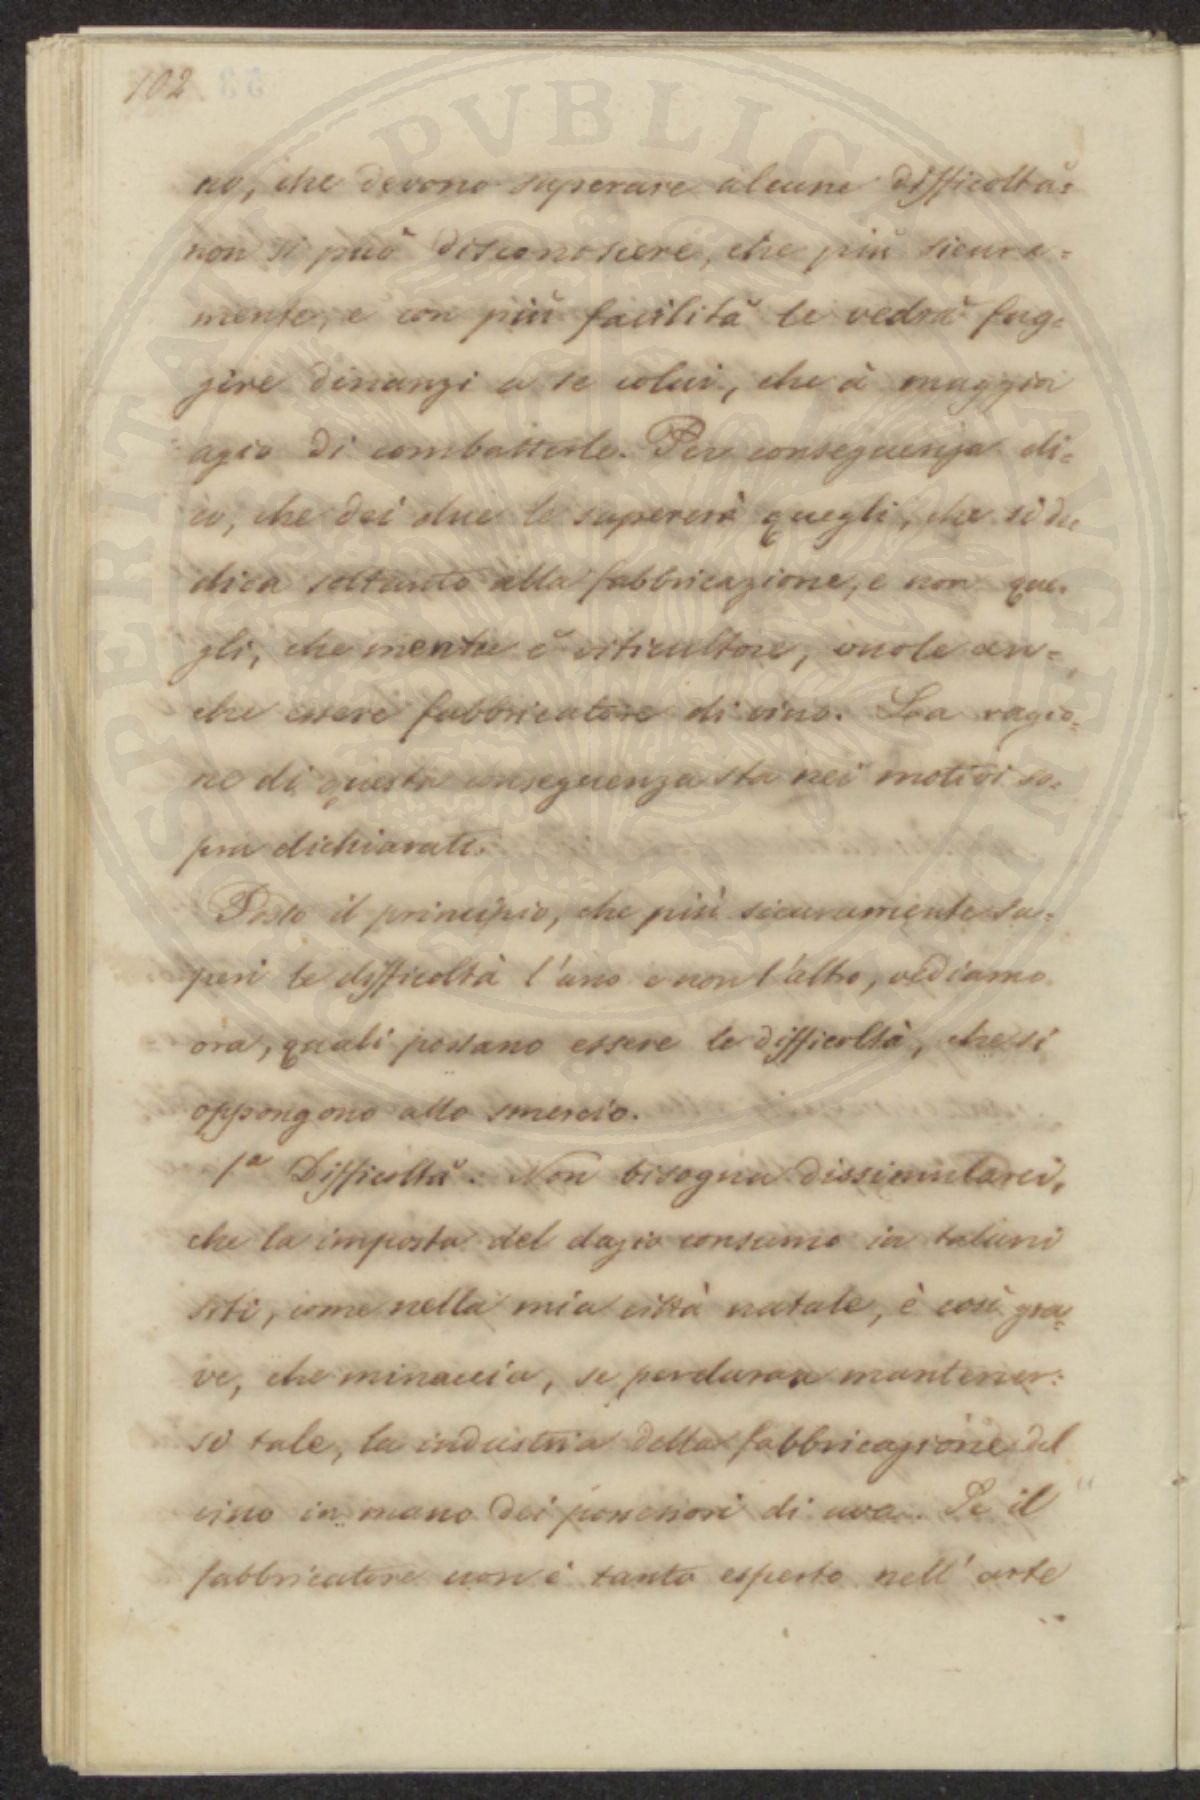 102
53
PVBLICAE
PROSPERITATI
AVGENDAE
no, che devono superare alcune difficoltà:
non si può disconoscere, che più sicura=
mente, e con più facilità le vedrà fug=
gire dinanzi a se colui, che à maggior
agio di combatterle. Per conseguenza di=
co, che dei due le supererà quegli, che si de
dica soltanto alla fabbricazione, e non que=
gli, che mentre è viticultore, vuole an=
che essere fabbricatore di vino. La ragio=
ne di questa conseguenza sta nei motivi so=
pra dichiarati.
Posto il principio, che più sicuramente su=
peri le difficoltà l'uno e non l'altro, vediamo
ora, quali possano essere le difficoltà, che si
oppongono allo smercio.
1ª Difficoltà. Non bisogna dissimularci,
che la imposta del dazio consumo in taluni
siti, come nella mia città natale, è così gra=
ve, che minaccia, se perdurera mantener=
si tale, la industria della fabbricazione del
vino in mano dei possessori di uva. Se il
fabbricatore non è tanto esperto nell'arte